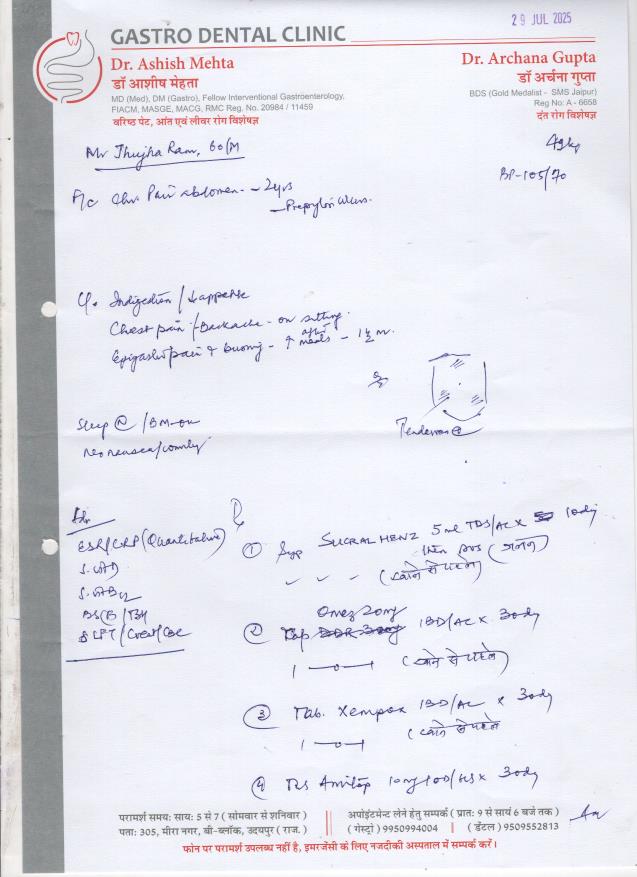 29 JUL 2025
GASTRO DENTAL CLINIC
Dr. Ashish Mehta
डॉ आशीष मेहता
MD (Med), DM (Gastro), Fellow Interventional Gastroenterology,
FIACM, MASGE, MACG, RMC Reg. No. 20984 / 11459
वरिष्ठ पेट, आंत एवं लीवर रोग विशेषज्ञ
Dr. Archana Gupta
डॉ अर्चना गुप्ता
BDS (Gold Medalist - SMS Jaipur)
Reg No: A - 6658
दंत रोग विशेषज्ञ
Mr Jhujha Ram, 60/M
49kg
BP-105/70
F/c Chr. Pain abdomen - 2yrs
- Prepyloric ulcers.
Indigestion / ↓appetite
Chest pain / Backache - on sitting.
Epigastric pain & burning - ↑ after meals - 1½ m.
Tenderness
Sleep / BM-on
no nausea/vomiting
Adv
ESR/CRP (Quantitative)
S. B12
LFT / Creat / CBC
① Syp SUCRAL HENZ 5ml TDS/AC x 10day
then SOS (जलन)
(खाने से पहले)
Omez 20mg
② Cap 1BD/AC x 30day
1 —o— 1 (खाने से पहले)
③ Tab. Xempax 1BD/AC x 30day
1 —o— 1 (खाने से पहले
④ Tab Amitop 10mg 1OD/HS x 30day
परामर्श समय: साय: 5 से 7 ( सोमवार से शनिवार )
पता: 305, मीरा नगर, बी-ब्लॉक, उदयपुर ( राज. )
अपोइंटमेन्ट लेने हेतु सम्पर्क ( प्रात: 9 से सायं 6 बजे तक )
( गेस्ट्रो ) 9950994004 | ( डेंटल ) 9509552813
फोन पर परामर्श उपलब्ध नहीं है, इमरजेंसी के लिए नजदीकी अस्पताल में सम्पर्क करें।